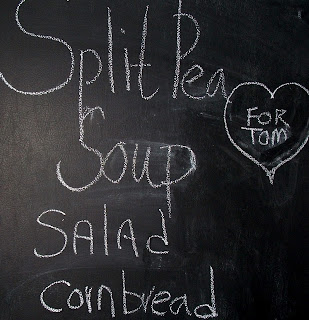 Split Pea
Soup
FOR
TOM
SALAd
cornbread